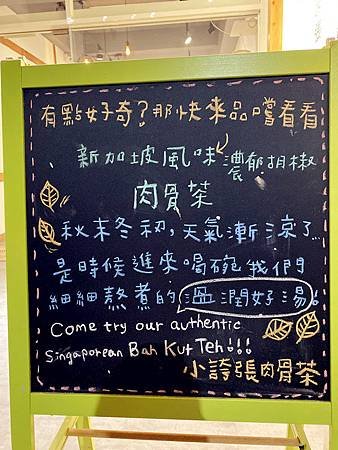 有點好奇？那快來品嚐看看
新加坡風味濃郁胡椒
肉骨茶
秋末冬初，天氣漸涼了...
是時候進來喝碗我們
細細熬煮的溫潤好湯！
Come try our authentic
Singaporean Bah Kut Teh!!!
小誇張肉骨茶